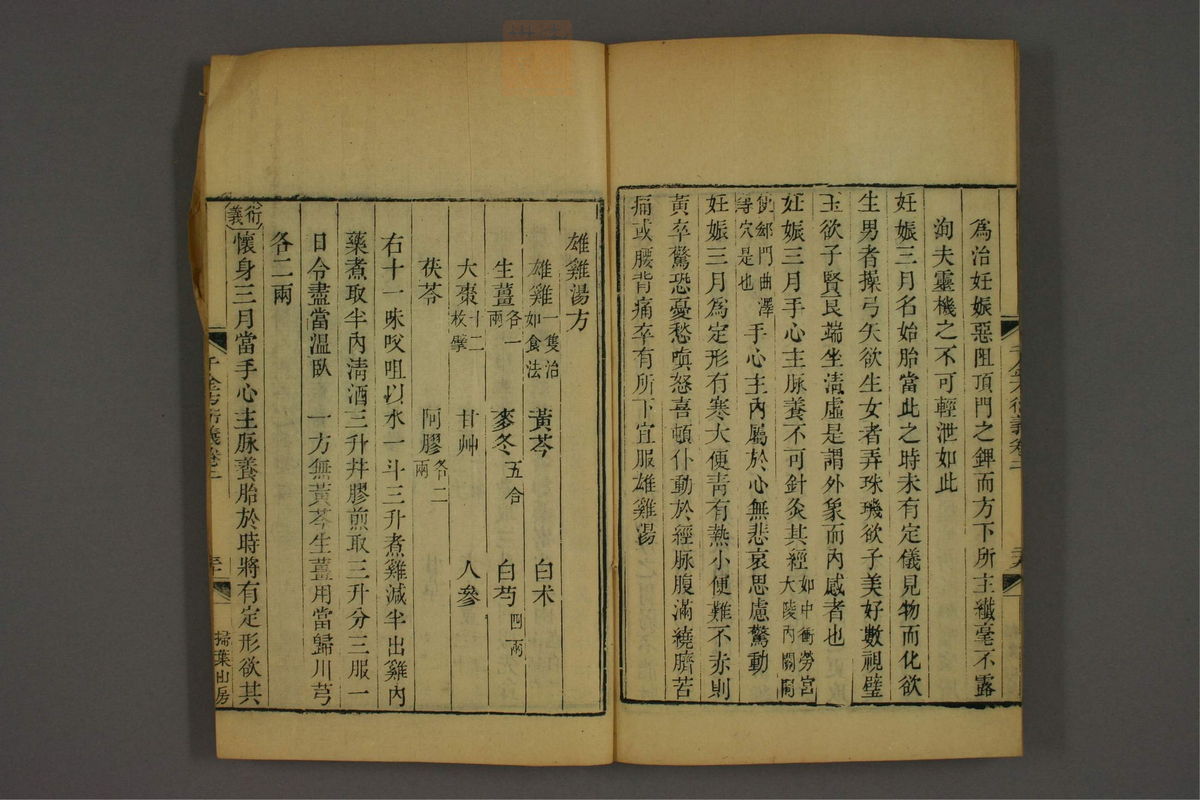 爲治妊娠惡阻頂門之鍼而方下所主纖毫不露
洵夫靈機之不可輕泄如此
妊娠三月名始胎當此之時未有定儀見物而化欲
生男者操弓矢欲生女者弄珠璣欲子美好數視璧
玉欲子賢良端坐清虛是謂外象而內感者也
妊娠三月手心主脉養不可針灸其經如中衝勞宮大陵內關間
使郄門曲澤等穴是也手心主內屬於心無悲哀思慮驚動
妊娠三月爲定形有寒大便靑有熱小便難不赤則
黃卒驚恐憂愁嗔怒喜頓仆動於經脉腹滿繞臍苦
痛或腰背痛卒有所下宜服雄雞湯
千金方衍義卷二
雄雞湯方
雄雞一隻治如食法 黃芩 白术
生薑各一兩 麥冬五合 白芍四兩
大棗十二枚擘 甘艸 人參
茯苓 阿膠各二兩
右十一味㕮咀以水一斗三升煮雞減半出雞內
藥煮取半內淸酒三升幷膠煎取三升分三服一
日令盡當溫臥 一方無黃芩生薑用當歸川芎
各二兩
衍義懷身三月當手心主脉養胎於時將有定形欲其
千金方衍義卷二
掃葉山房